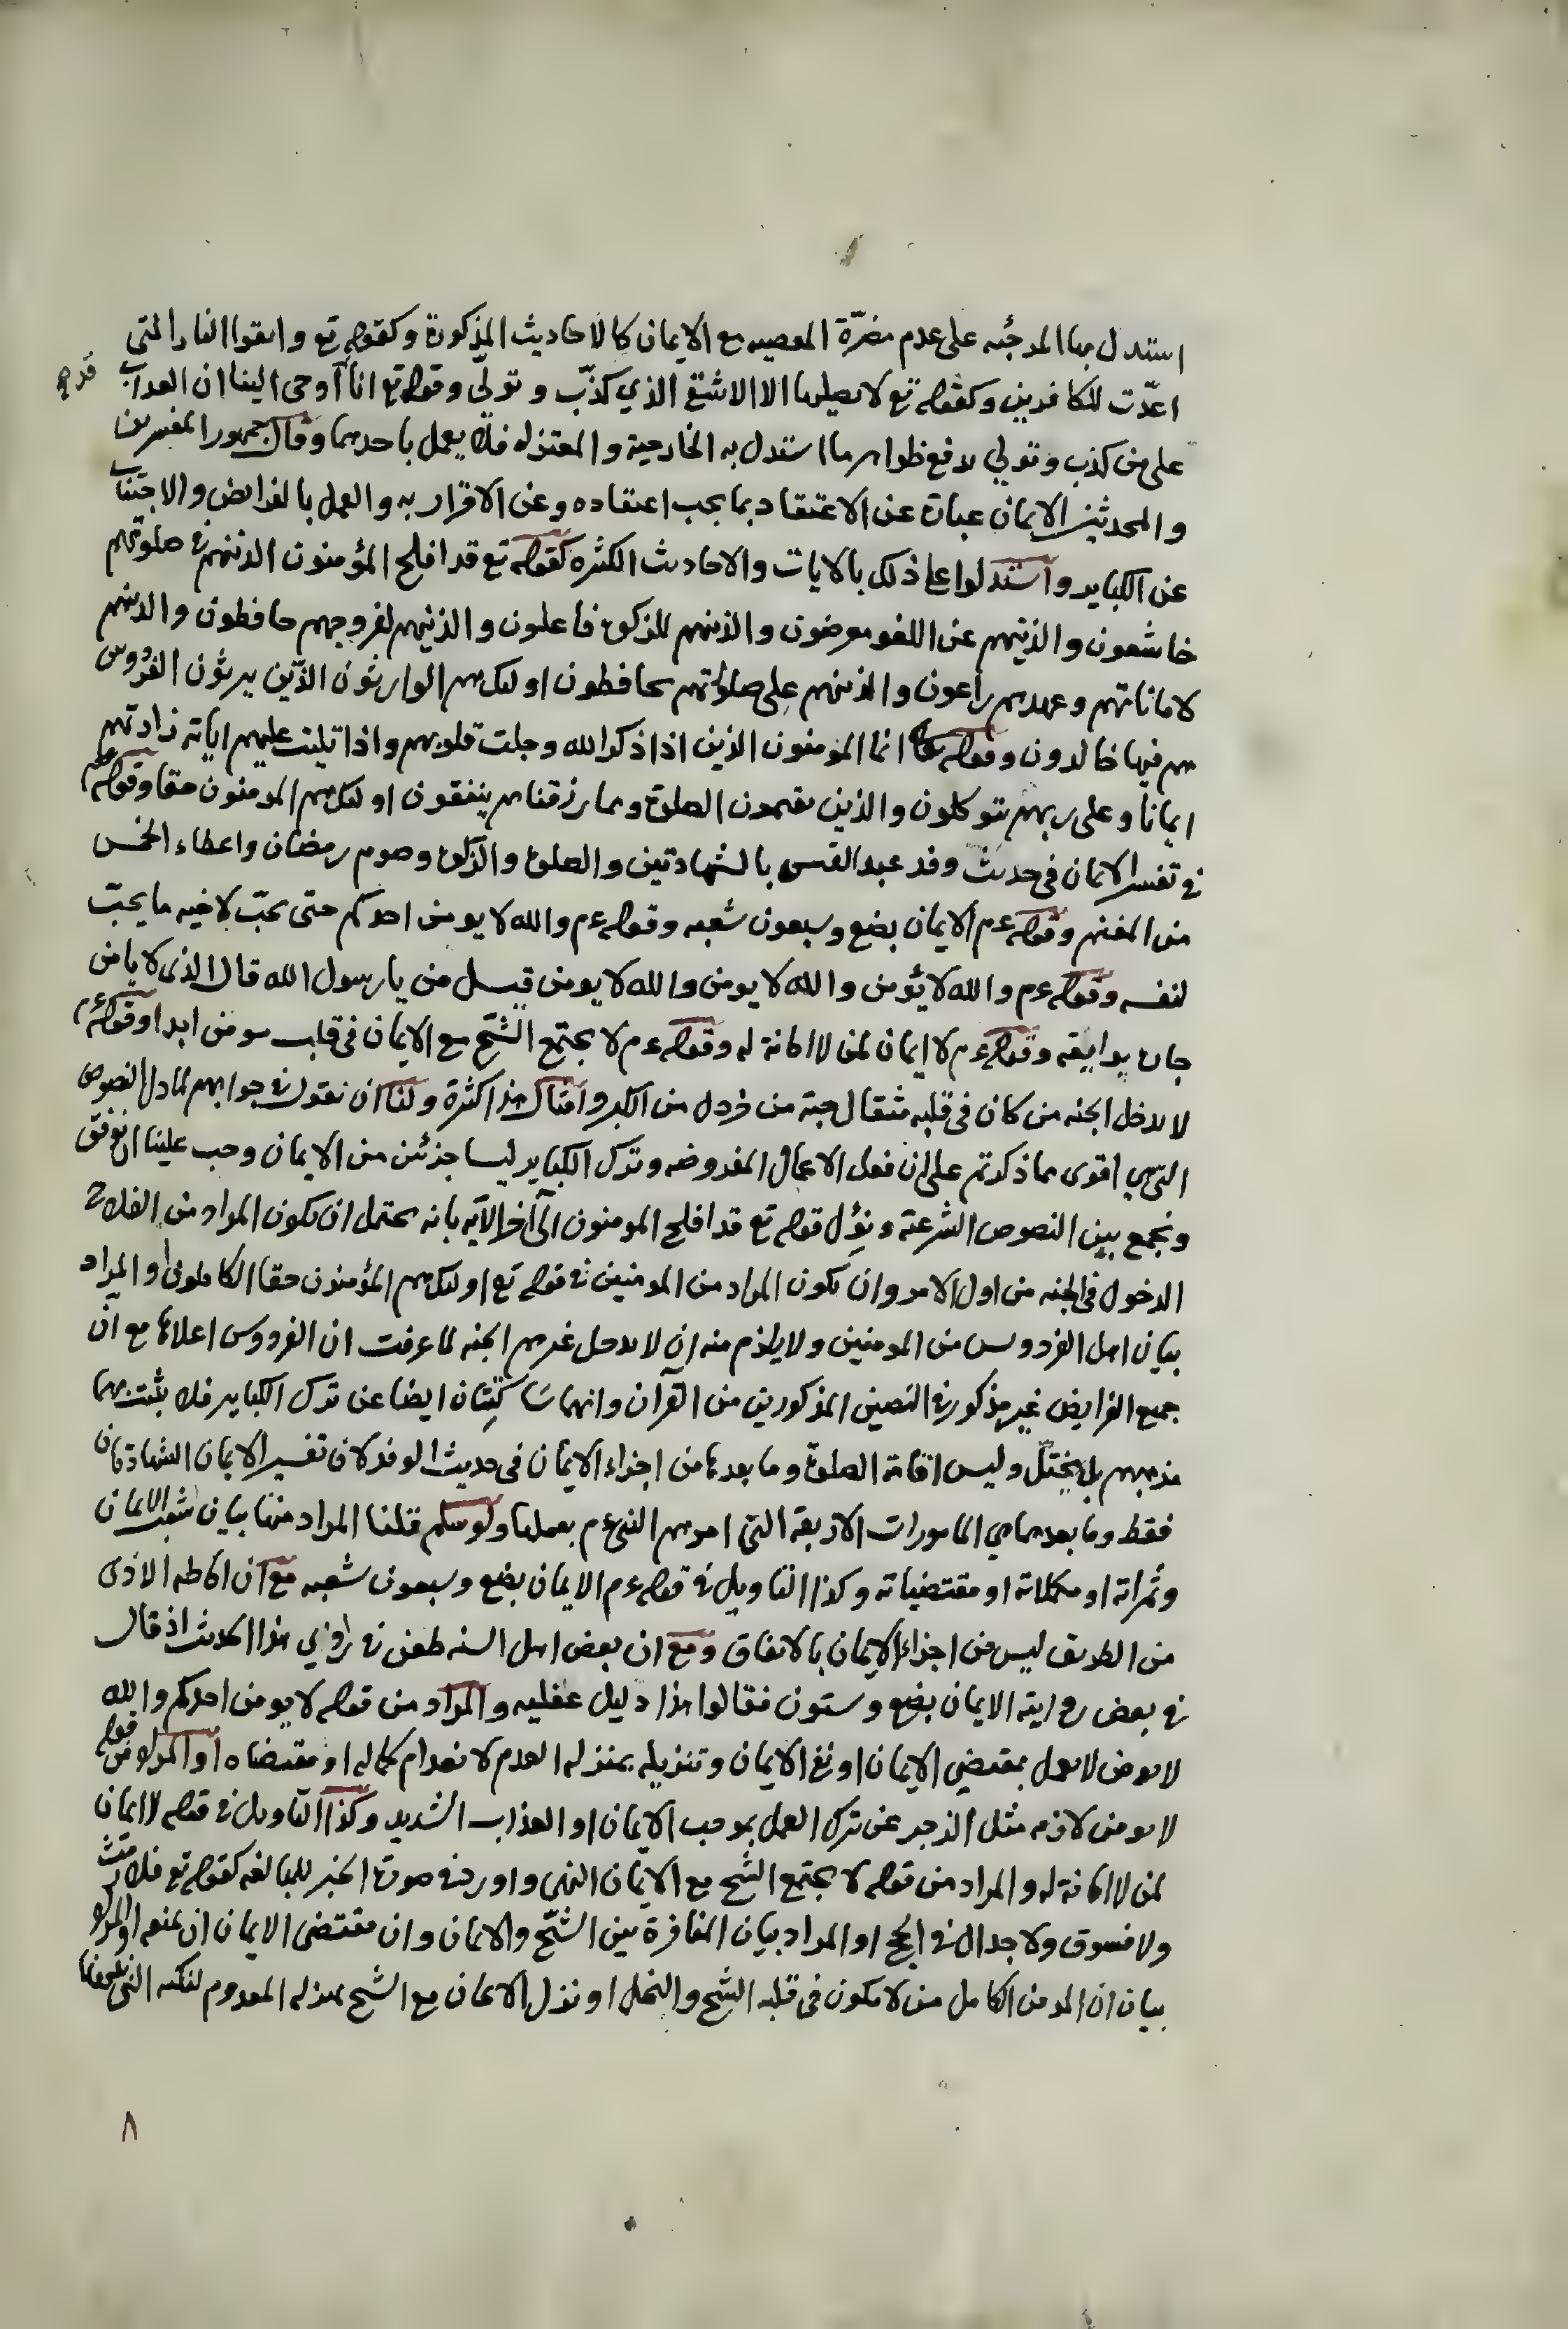 استدل بها المرجئه على عدم مضرّة المعصيه مع الايمان كالاحاديث المذكورة وكقوله تع واتقوا النار التي
اعدّت للكافرين وكقوله تع لا يصليها الا الاشقى الذي كذّب وتولّى وقوله تع انا قد اوحى الينا ان العذاب
على من كذب وتولي يدفع ظواهر ما استدل به الخارجية والمعتزله فلا يعمل باحدهما وقال جمهور المفسرين
والمحدثين الايمان عبارة عن الاعتقاد بما يجب اعتقاده وعن الاقرار به والعمل بالفرايض والاجتناب
عن الكباير واستدلوا على ذلك بالايات والاحاديث الكثيره كقوله تع قد افلح المؤمنون الذينهم في صلوتهم
خاشعون والذينهم عن اللغو معرضون والذينهم للزكوة فاعلون والذينهم لفروجهم حافظون والذينهم
لاماناتهم وعهدهم راعون والذينهم على صلواتهم يحافظون اولئك هم الوارثون الذين يرثون الفردوس
هم فيها خالدون وقوله تعالى انما المومنون الذين اذا ذكر الله وجلت قلوبهم واذا تليت عليهم اياته زادتهم
ايمانا وعلى ربهم يتوكلون والذين يقيمون الصلوة ومما رزقناهم ينفقون اولئك هم المومنون حقا وقوله عم
في تفسير الايمان في حديث وفد عبد القيس بالشهادتين والصلوة والزكوة وصوم رمضان واعطاء الخمس
من المغنم وقوله عم الايمان بضع وسبعون شعبه وقوله عم والله لا يومن احدكم حتى يحبّ لاخيه ما يحبّ
لنفسه وقوله عم والله لا يؤمن والله لا يومن والله لا يومن قيل من يا رسول الله قال الذي لا يامن
جاره بوايقه وقوله عم لا ايمان لمن لا امانة له وقوله عم لا يجتمع الشّح مع الايمان في قلب مومن ابدا وقوله عم
لا يدخل الجنه من كان في قلبه مثقال حبة من خردل من الكبر وامثال هذا كثرة ولنا ان نقول في جوابهم لما دل النصوص
التي هي اقوى مما ذكرتم على ان فعل الاعمال المفروضه وترك الكباير ليسا جزئين من الايمان وجب علينا ان نوفق
ونجمع بين النصوص الشرعية ونؤل قوله تع قد افلح المومنون الى آخر الآيه بانه يحتمل ان يكون المراد من الفلاح
الدخول في الجنه من اول الامر وان يكون المراد من المومنين في قوله تع اولئك هم المؤمنون حقا الكاملون او المراد
بيان اهل الفردوس من المومنين ولا يلزم منه ان لا يدخل غيرهم الجنه لما عرفت ان الفردوس اعلاها مع ان
جميع الفرايض غير مذكور في النصين المذكورين من القرآن وانهما ساكتتان ايضا عن ترك الكباير فلا يثبت بهما
مذهبهم بل يختلّ وليس اقامة الصلوة وما بعدها من اجزاء الايمان في حديث الوفد لان تفسير الايمان الشهادتان
فقط وما بعدهما هي المامورات الاربعة التي امرهم النبي عم بعملها ولو سلم قلنا المراد منها بيان شعب الايمان
وثمراته او مكملاته او مقتضياته وكذا التاويل في قوله عم الايمان بضع وسبعون شعبه مع ان اماطه الاذى
من الطريق ليس من اجزاء الايمان بالاتفاق ومع ان بعض اهل السنه طعن في راوي هذا الحديث اذ قال
في بعض روايته الايمان بضع وستون فقالوا هذا دليل غفليه والمراد من قوله لا يومن احدكم والله
لا يومن لا يعمل بمقتضي الايمان او نفي الايمان وتنزيله بمنزله العدم لانعدام كماله او مقتضاه او المراد من قوله
لا يومن لازمه مثل الزجر عن ترك العمل بموجب الايمان او العذاب الشديد وكذا التاويل في قوله لا ايمان
لمن لا امانة له والمراد من قوله لا يجتمع الشّح مع الايمان النهى واورد في صورة الخبر للمبالغه كقوله تع فلا رفث
ولا فسوق ولا جدال في الحج او المراد بيان المنافرة بين الشّح والايمان وان مقتضى الايمان ان يمنعه او المراد
بيان ان المومن الكامل من لا يكون في قلبه الشح والبخل او نزل الايمان مع الشح بمنزله المعدوم لنكته التي
٨